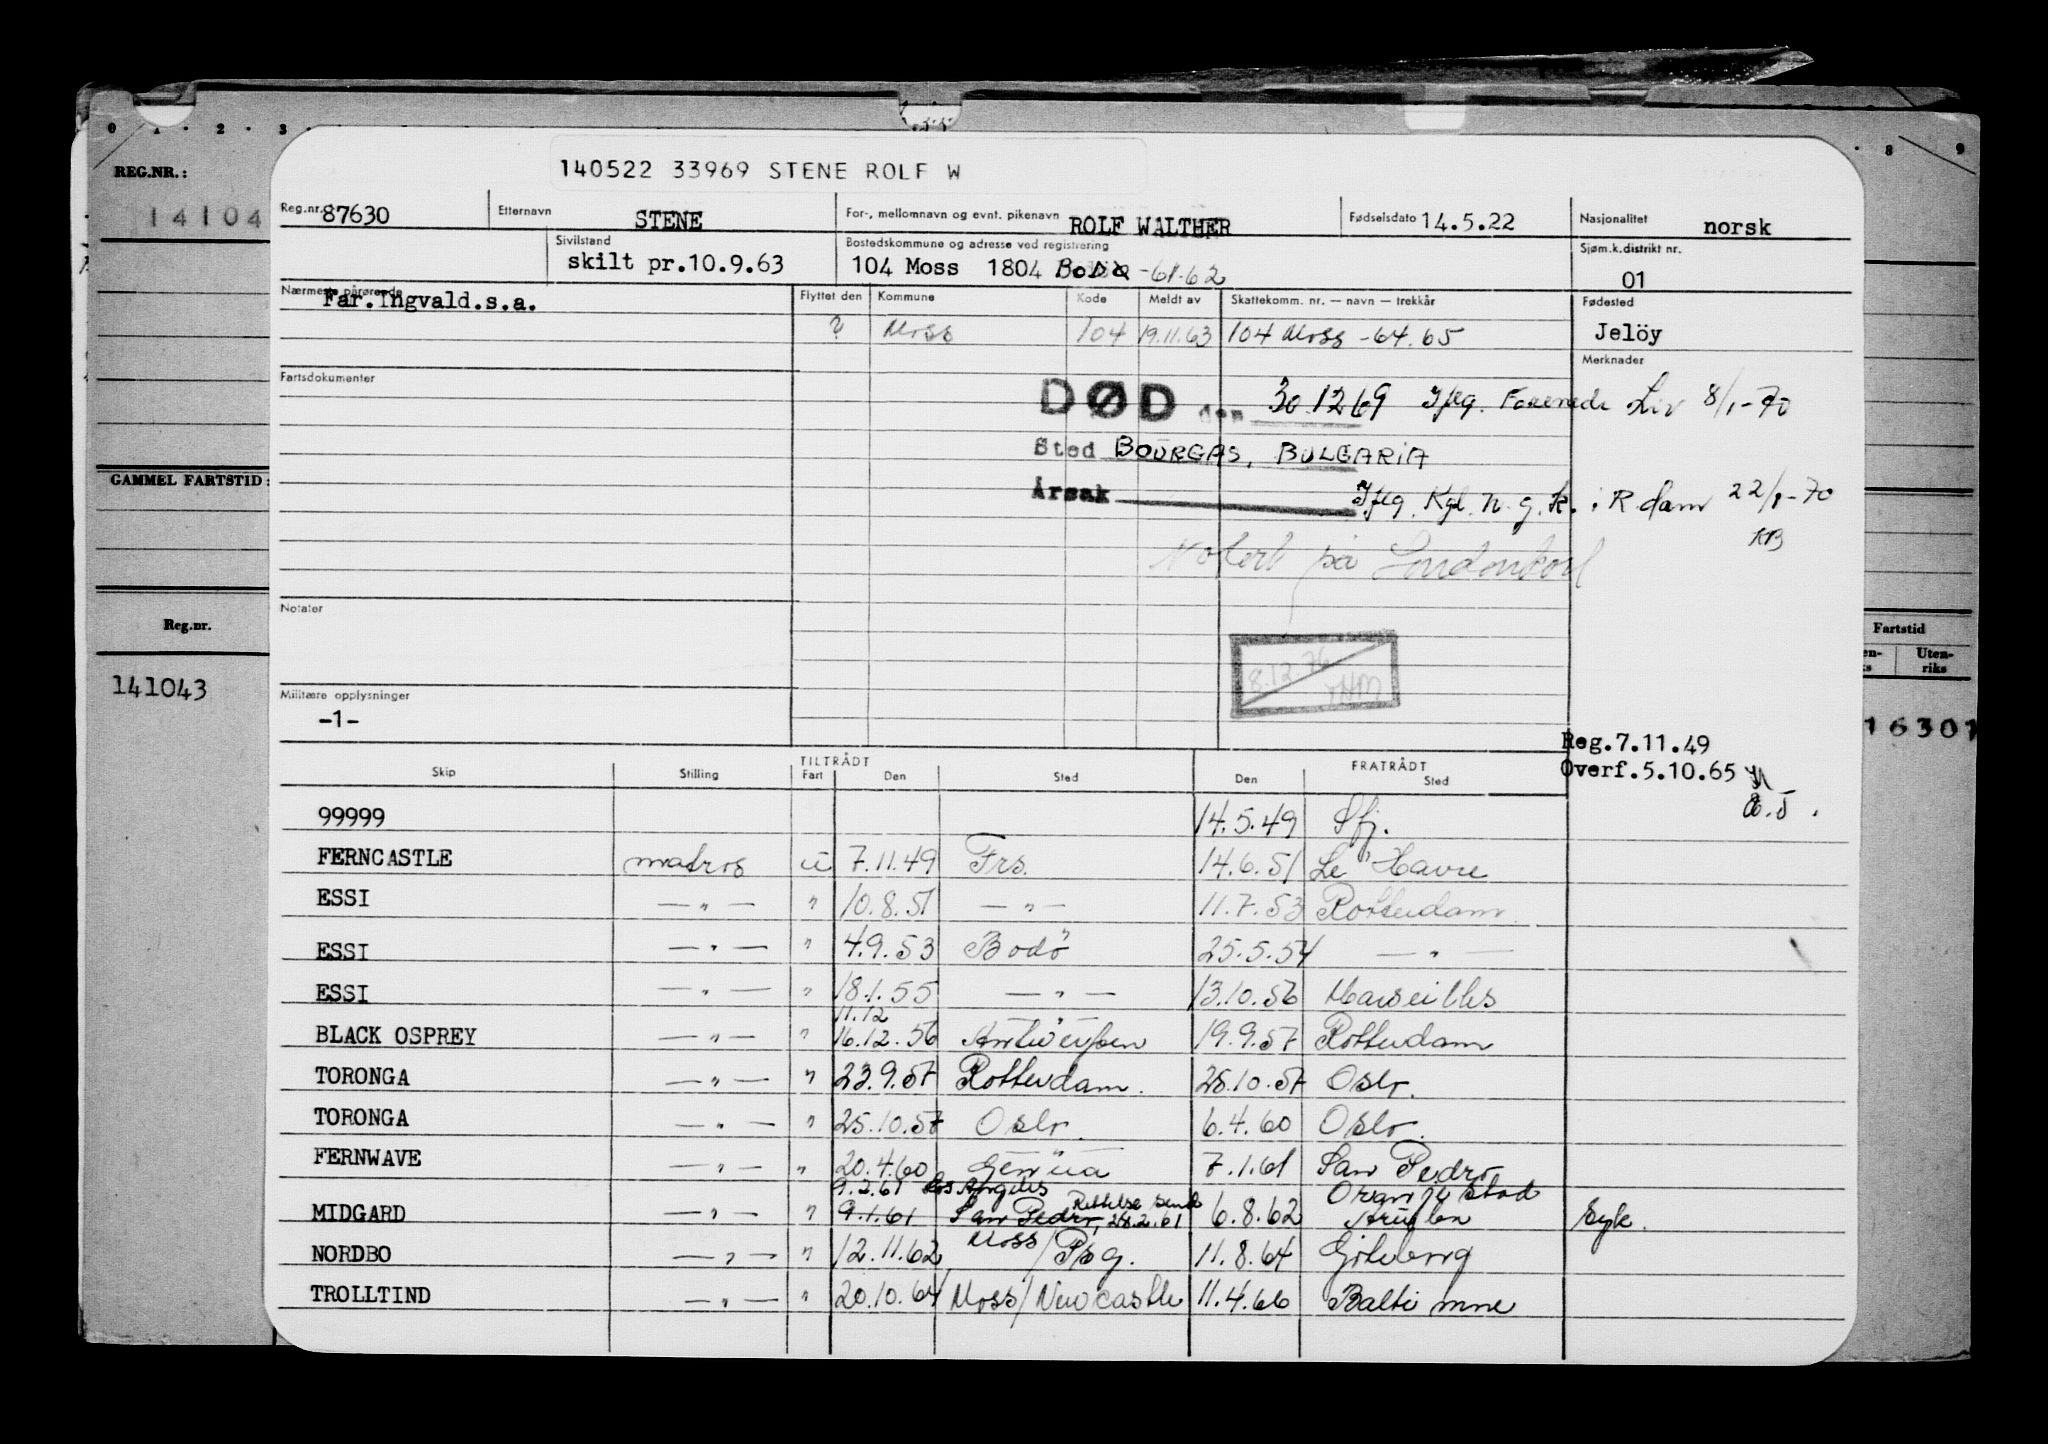 0 · 1 · 2 · 3 · 8 · 9
REG.NR.:
14104
GAMMEL FARTSTID:
Reg.nr.
141043
Fartstid
Uten-
riks
16301
140522 33969 STENE ROLF W
Reg.nr. 87630 Etternavn STENE For-, mellomnavn og evnt. pikenavn ROLF WALTHER Fødselsdato 14.5.22 Nasjonalitet norsk
Sivilstand skilt pr.10.9.63 Bostedskommune og adresse ved registrering 104 Moss 1804 Bodö -61-62 Sjøm.k.distrikt nr. 01
Nærmeste pårørende Far.Ingvald.s.a. Flyttet den Kommune Kode Meldt av Skattekomm. nr. — navn — trekkår Fødested
? Moss 104 19.11.63 104 Moss -64.65 Jelöy
Merknader
Fartsdokumenter
DØD den 30.12.69 Iflg. Forenede Liv 8/1-70
Sted BOURGAS, BULGARIA
Årsak Iflg. Kgl. N. g. k. i R dam 22/1-70
KB
Notert på
Notater
8.12.76
Militære opplysninger
-1-
Reg.7.11.49
Overf.5.10.65
TILTRÅDT FRATRÅDT
Skip Stilling Fart Den Sted Den Sted
99999 14.5.49 Sfj.
FERNCASTLE matros u 7.11.49 Frs. 14.6.51 Le Havre
ESSI — " — " 10.8.51 — " — 11.7.53 Rotterdam
ESSI — " — " 4.9.53 Bodö 25.5.54 — " —
ESSI — " — " 18.1.55 — " — 13.10.56 Marseilles
11.12
BLACK OSPREY — " — " 16.12.56 Antwerpen 19.9.57 Rotterdam
TORONGA — " — " 23.9.57 Rotterdam. 25.10.57 Oslo.
TORONGA — " — " 25.10.57 Oslo. 6.4.60 Oslo.
FERNWAVE — " — " 20.4.60 Genua 7.1.61 San Pedro
9.2.61 Los Angeles Rettelse send 28.2.61 Oranjestad
MIDGARD — " — " 9.1.61 San Pedro, 6.8.62 Aruba Syk.
NORDBO — " — " 12.11.62 Moss / Psg. 11.8.64 Göteborg
TROLLTIND — " — " 20.10.64 Moss / Newcastle 11.4.66 Baltimore